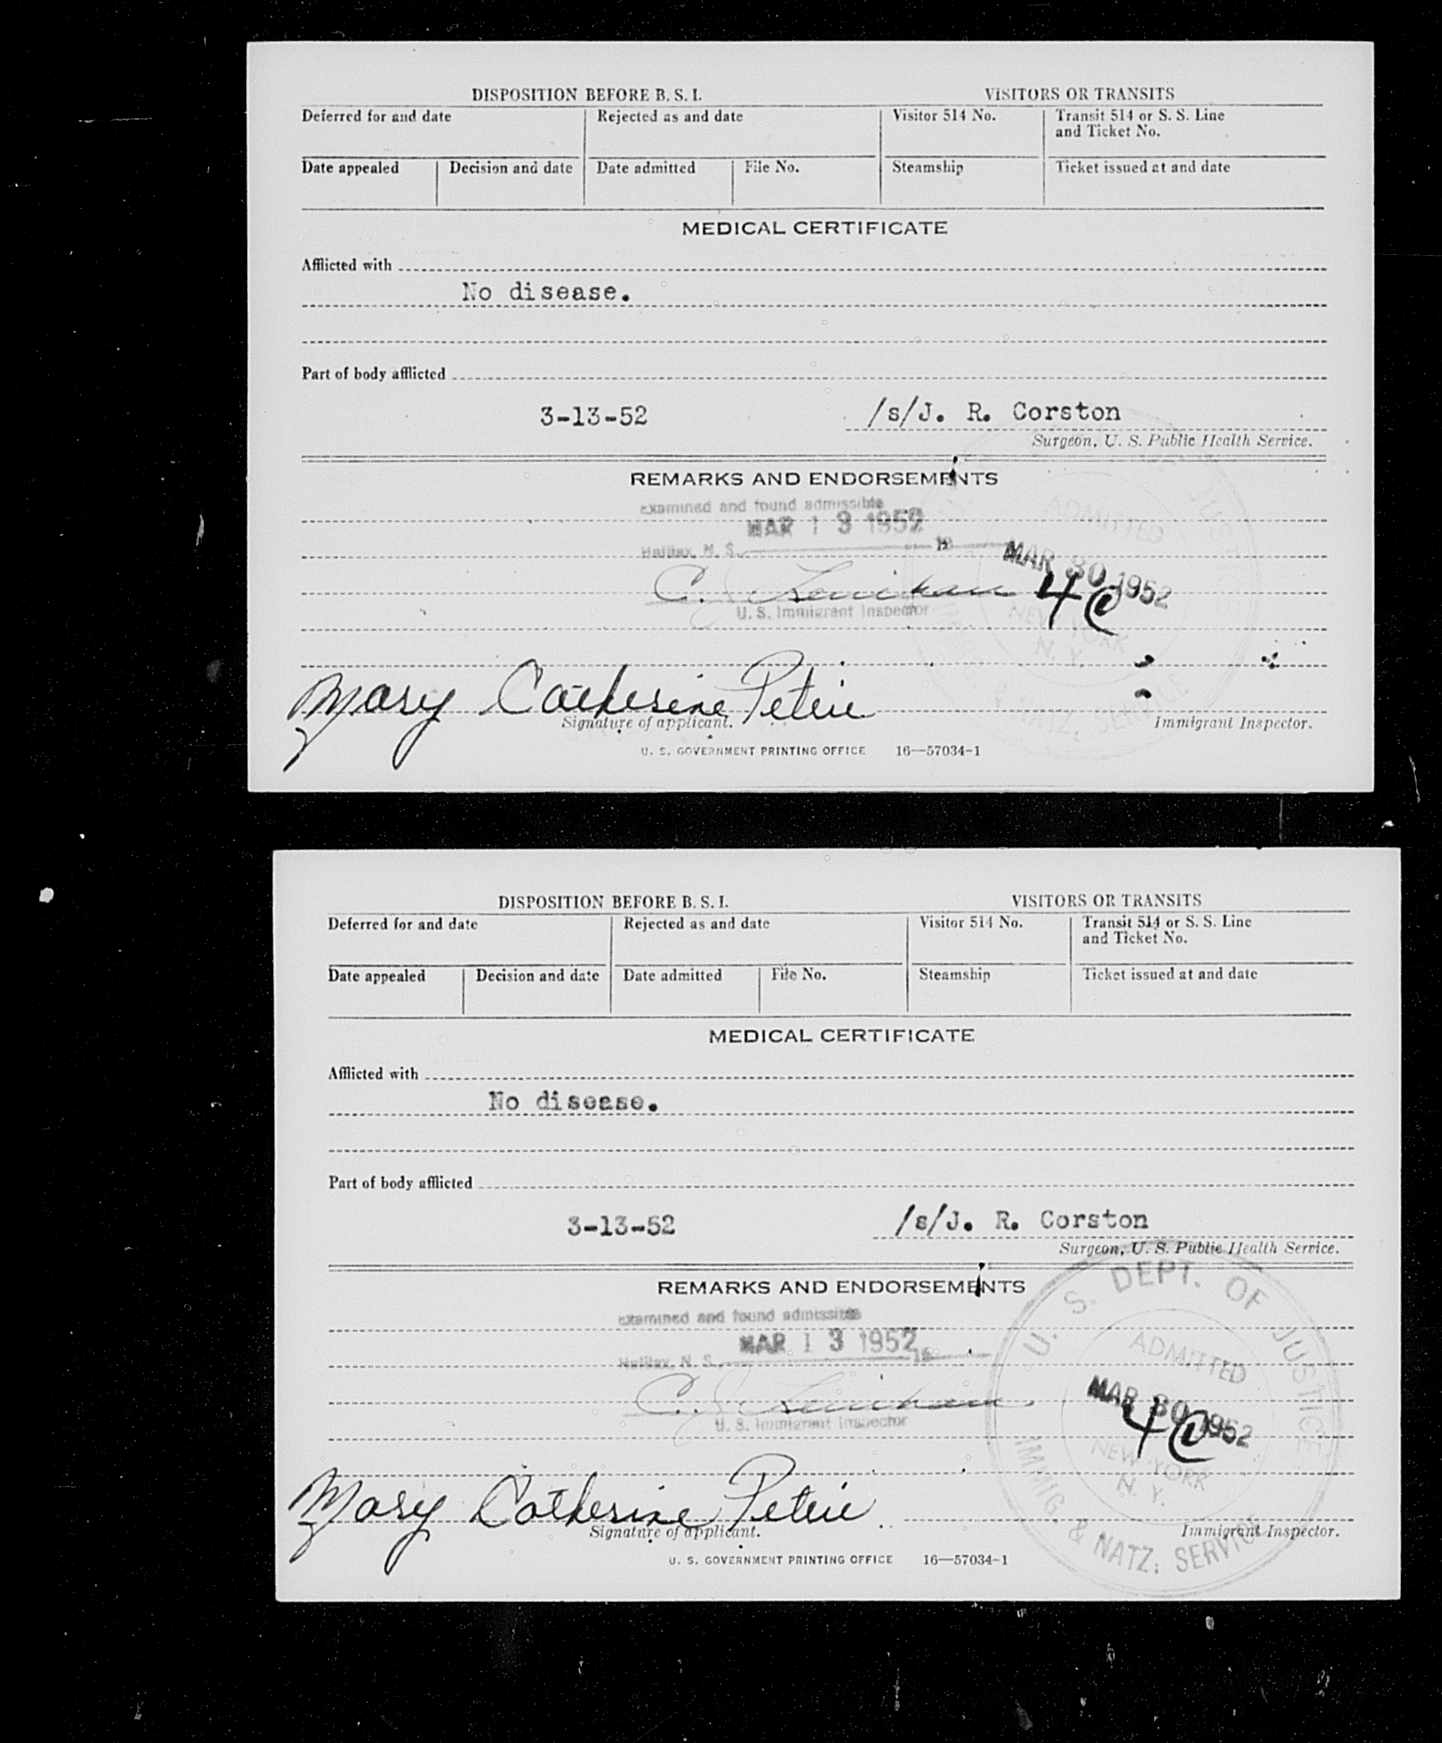 DISPOSITION BEFORE B. S. I.
VISITORS OR TRANSITS
Deferred for and date
Rejected as and date
Visitor 514 No.
Transit 514 or S. S. Line
and Ticket No.
Date appealed
Decision and date
Date admitted
File No.
Steamship
Ticket issued at and date
MEDICAL CERTIFICATE
Afflicted with
No disease.
Part of body afflicted
3-13-52
/s/J. R. Corston
Surgeon, U. S. Public Health Service.
REMARKS AND ENDORSEMENTS
examined and found admissible
MAR 13 1952
Halifax, N. S. 19
ADMITTED
MAR 30 1952
C.
4
U. S. Immigrant Inspector
NEW YORK
N. Y.
Mary Catherine Petrie
Signature of applicant.
Immigrant Inspector.
& NATZ. SERVICE
U. S. GOVERNMENT PRINTING OFFICE 16—57034-1
DISPOSITION BEFORE B. S. I.
VISITORS OR TRANSITS
Deferred for and date
Rejected as and date
Visitor 514 No.
Transit 514 or S. S. Line
and Ticket No.
Date appealed
Decision and date
Date admitted
File No.
Steamship
Ticket issued at and date
MEDICAL CERTIFICATE
Afflicted with
No disease.
Part of body afflicted
3-13-52
/s/J. R. Corston
Surgeon, U. S. Public Health Service.
REMARKS AND ENDORSEMENTS
U. S. DEPT. OF JUSTICE
examined and found admissible
MAR 13 1952
Halifax, N. S. 19
ADMITTED
MAR 30 1952
C.
4
U. S. Immigrant Inspector
NEW YORK
N. Y.
IMMIG. & NATZ. SERVICE
Mary Catherine Petrie
Signature of applicant.
Immigrant Inspector.
U. S. GOVERNMENT PRINTING OFFICE 16—57034-1